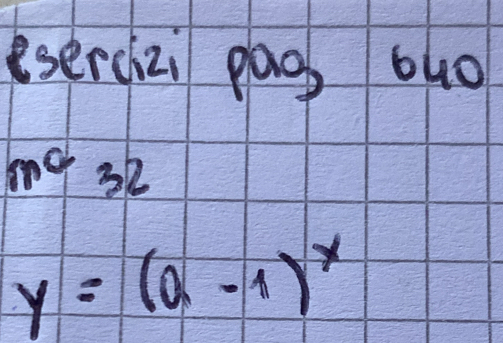 esercizi pag 640
n° 32
y = (a - 1)^x